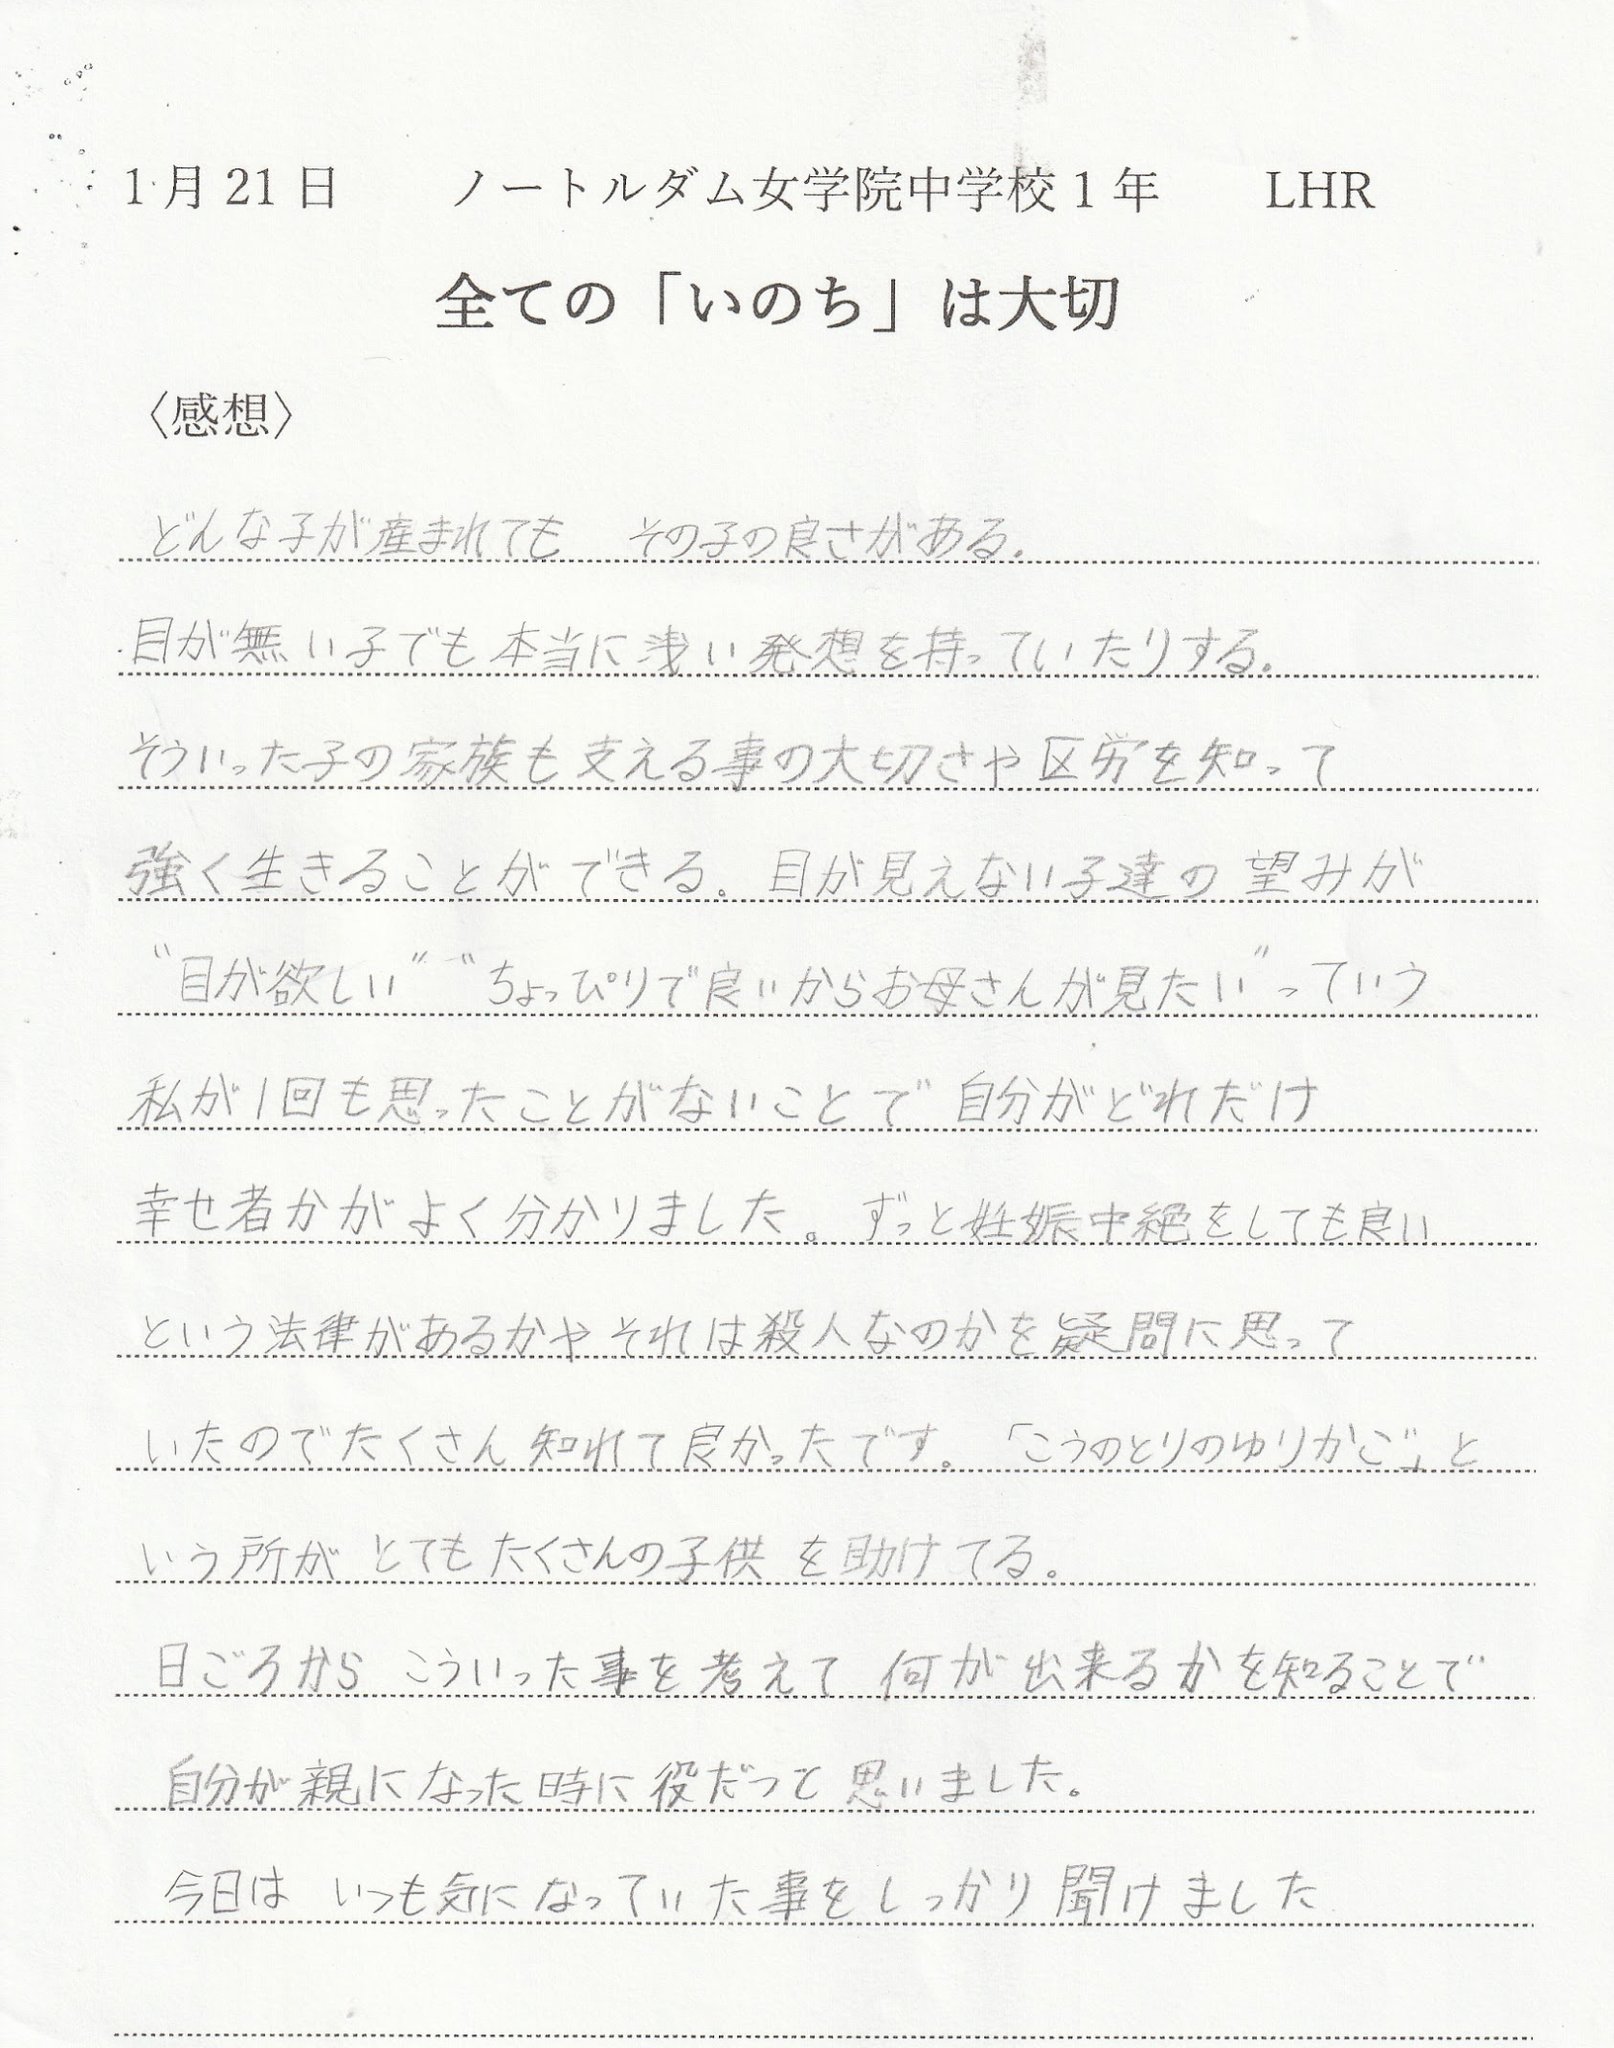 1月21日　ノートルダム女学院中学校1年　LHR
全ての「いのち」は大切
〈感想〉
どんな子が産まれても　その子の良さがある.
目が無い子でも本当に浅い発想を持っていたりする.
そういった子の家族も支える事の大切さや区労を知って
強く生きることができる。目が見えない子達の望みが
“目が欲しい”“ちょっぴりで良いからお母さんが見たい”っていう
私が1回も思ったことがないことで自分がどれだけ
幸せ者かがよく分かりました。ずっと妊娠中絶をしても良い
という法律があるかやそれは殺人なのかを疑問に思って
いたのでたくさん知れて良かったです。「こうのとりのゆりかご」と
いう所がとてもたくさんの子供を助けてる。
日ごろからこういった事を考えて何が出来るかを知ることで
自分が親になった時に役だつと思いました。
今日はいつも気になっていた事をしっかり聞けました